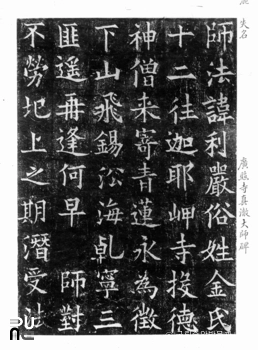 失名
廣照寺真澈大師碑
師法諱利嚴俗姓金氏
十二往迦耶岬寺投德
神僧来寄青蓮永為徵
下山飛錫㳂海乹寧三
匪遥再逢何早 師對
不勞圯上之期潛受